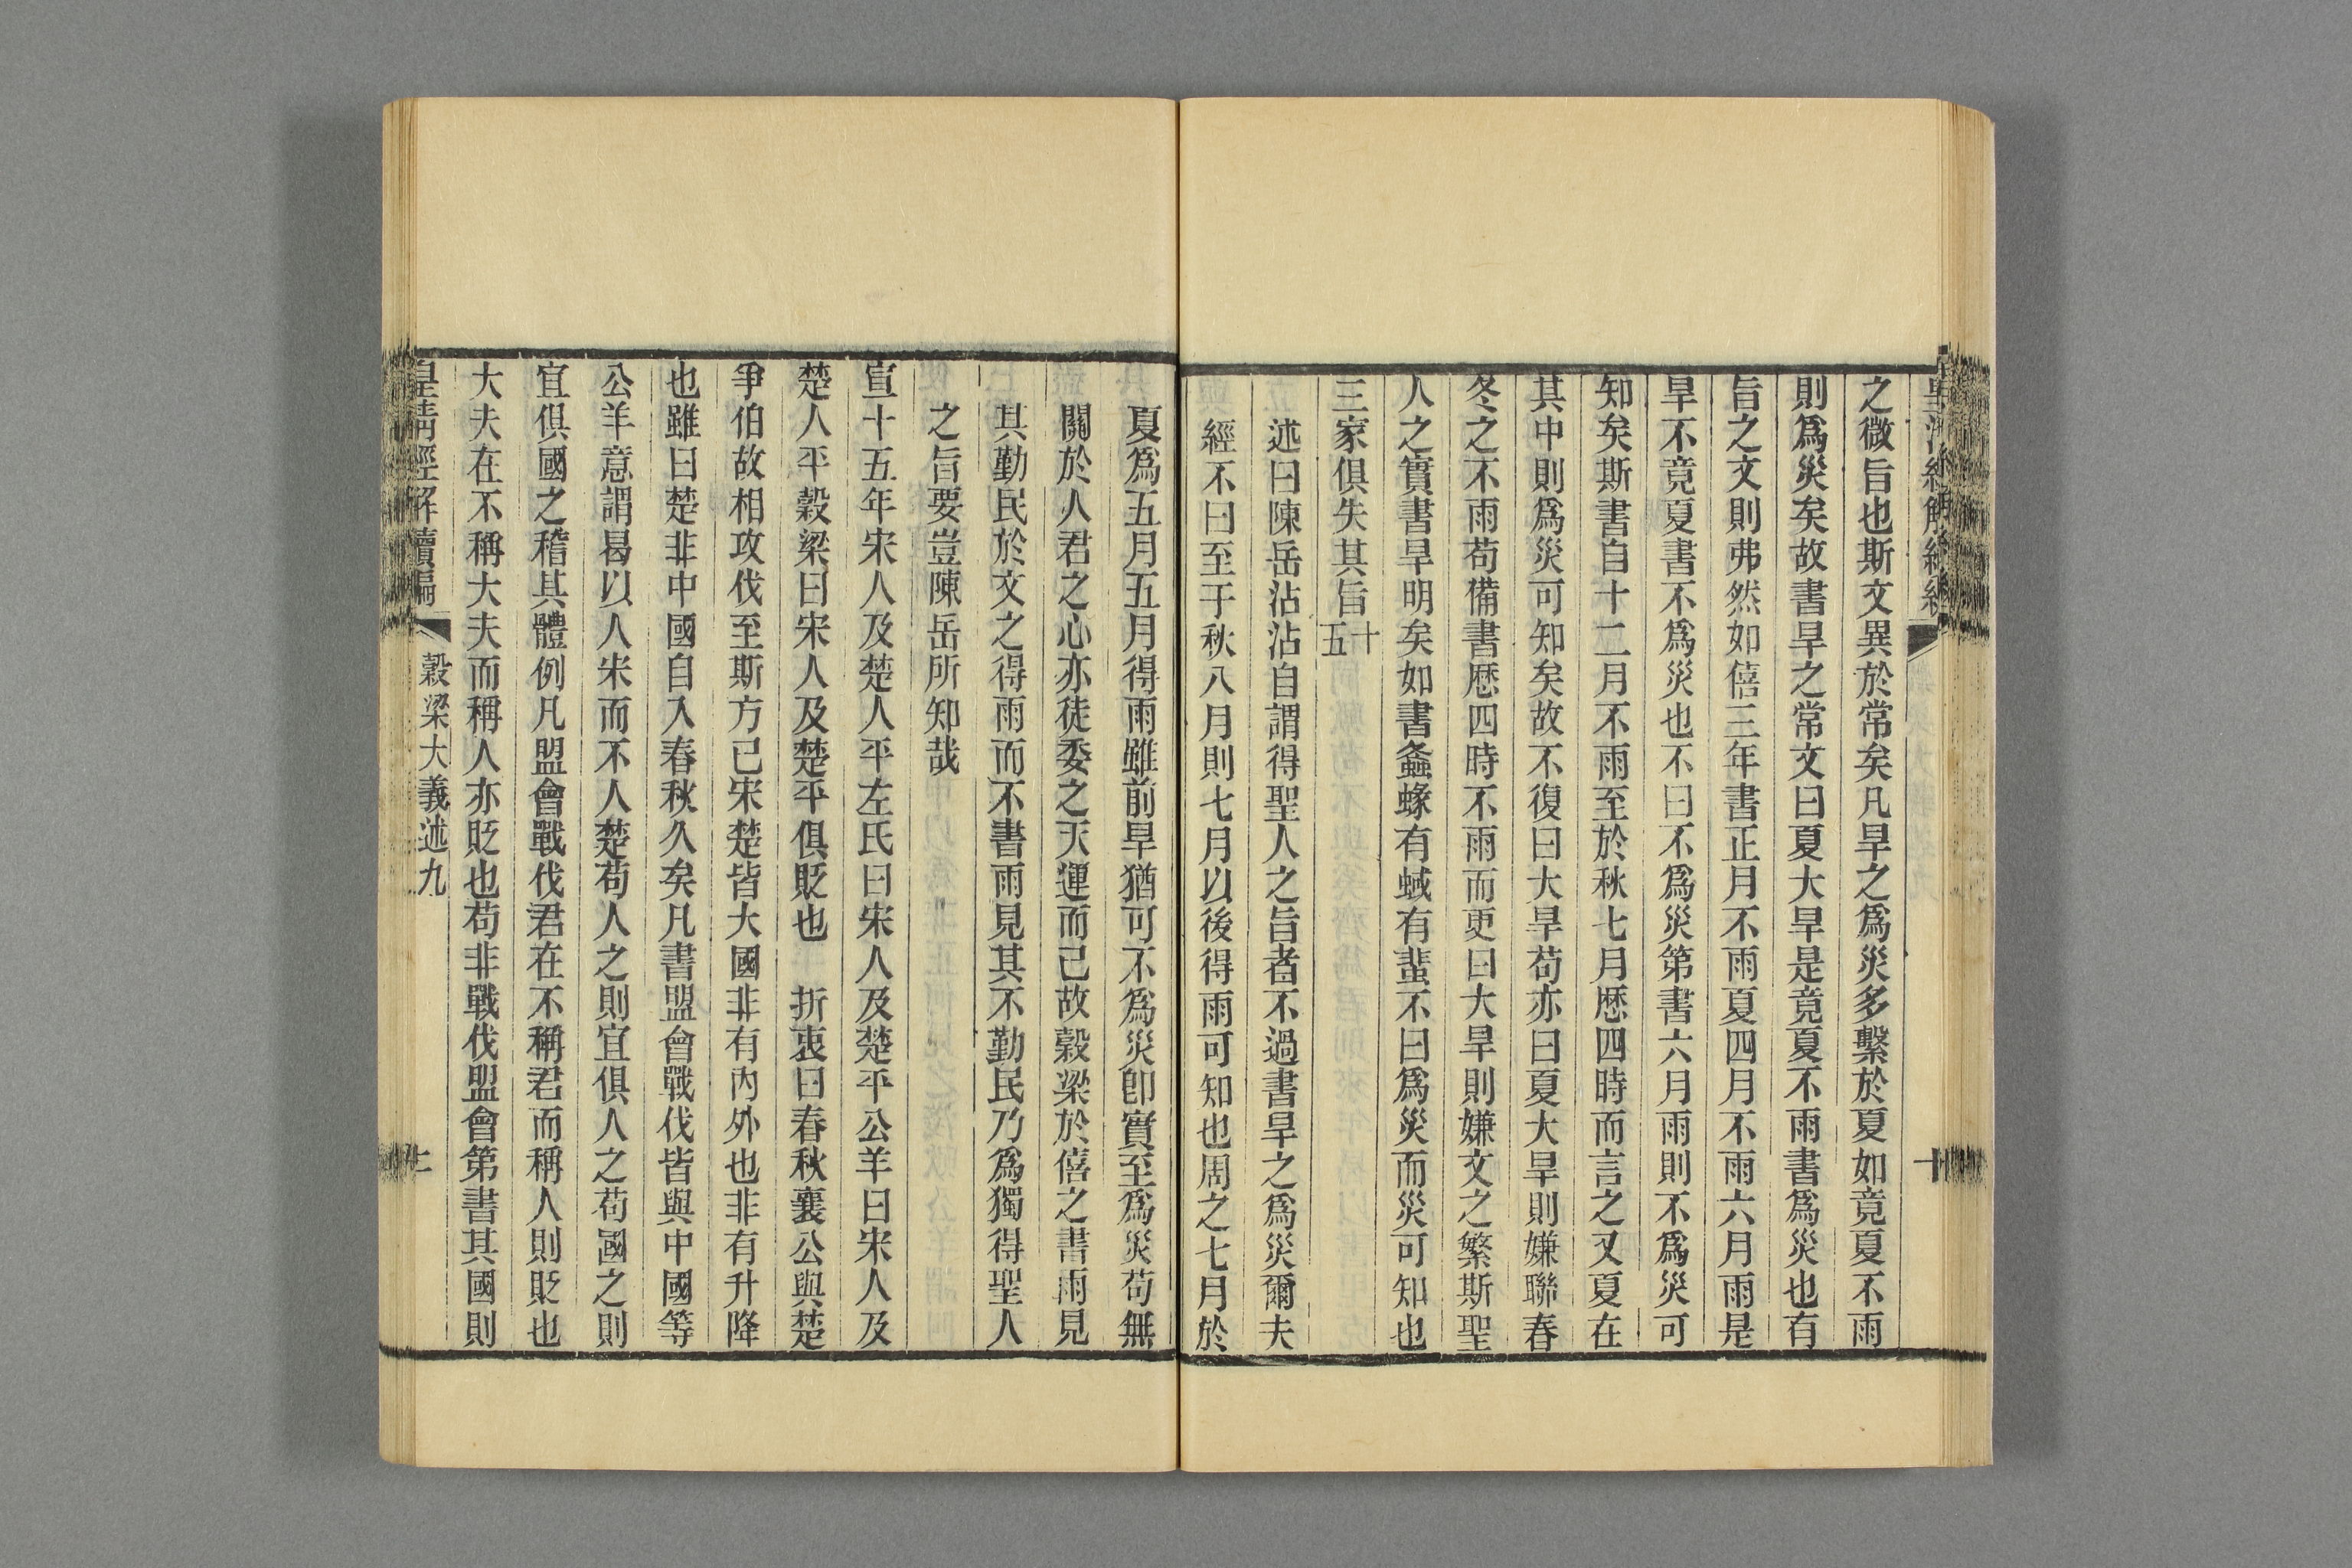 之微旨也斯文異於常矣凡旱之爲災多繫於夏如竟夏不雨
則爲災矣故書旱之常文曰夏大旱是竟夏不雨書爲災也有
旨之文則弗然如僖三年書正月不雨夏四月不雨六月雨是
旱不竟夏書不爲災也不曰不爲災第書六月雨則不爲災可
知矣斯書自十二月不雨至於秋七月歴四時而言之又夏在
其中則爲災可知矣故不復曰大旱苟亦曰夏大旱則嫌聯春
冬之不雨苟備書歴四時不雨而更曰大旱則嫌文之繁斯聖
人之實書旱明矣如書螽蝝有蜮有蜚不曰爲災而災可知也
三家俱失其旨十五
述曰陳岳沾沾自謂得聖人之旨者不過書旱之爲災爾夫
經不曰至于秋八月則七月以後得雨可知也周之七月於
夏爲五月五月得雨雖前旱猶可不爲災卽實至爲災苟無
關於人君之心亦徒委之天運而已故穀梁於僖之書雨見
其勤民於文之得雨而不書雨見其不勤民乃爲獨得聖人
之旨要豈陳岳所知哉
宣十五年宋人及楚人平左氏曰宋人及楚平公羊曰宋人及
楚人平穀梁曰宋人及楚平俱貶也　折衷曰春秋襄公與楚
爭伯故相攻伐至斯方已宋楚皆大國非有內外也非有升降
也雖曰楚非中國自入春秋久矣凡書盟會戰伐皆與中國等
公羊意謂曷以人宋而不人楚苟人之則宜俱人之苟國之則
宜俱國之稽其體例凡盟會戰伐君在不稱君而稱人則貶也
大夫在不稱大夫而稱人亦貶也苟非戰伐盟會第書其國則
皇清經解續編　穀梁大義述九